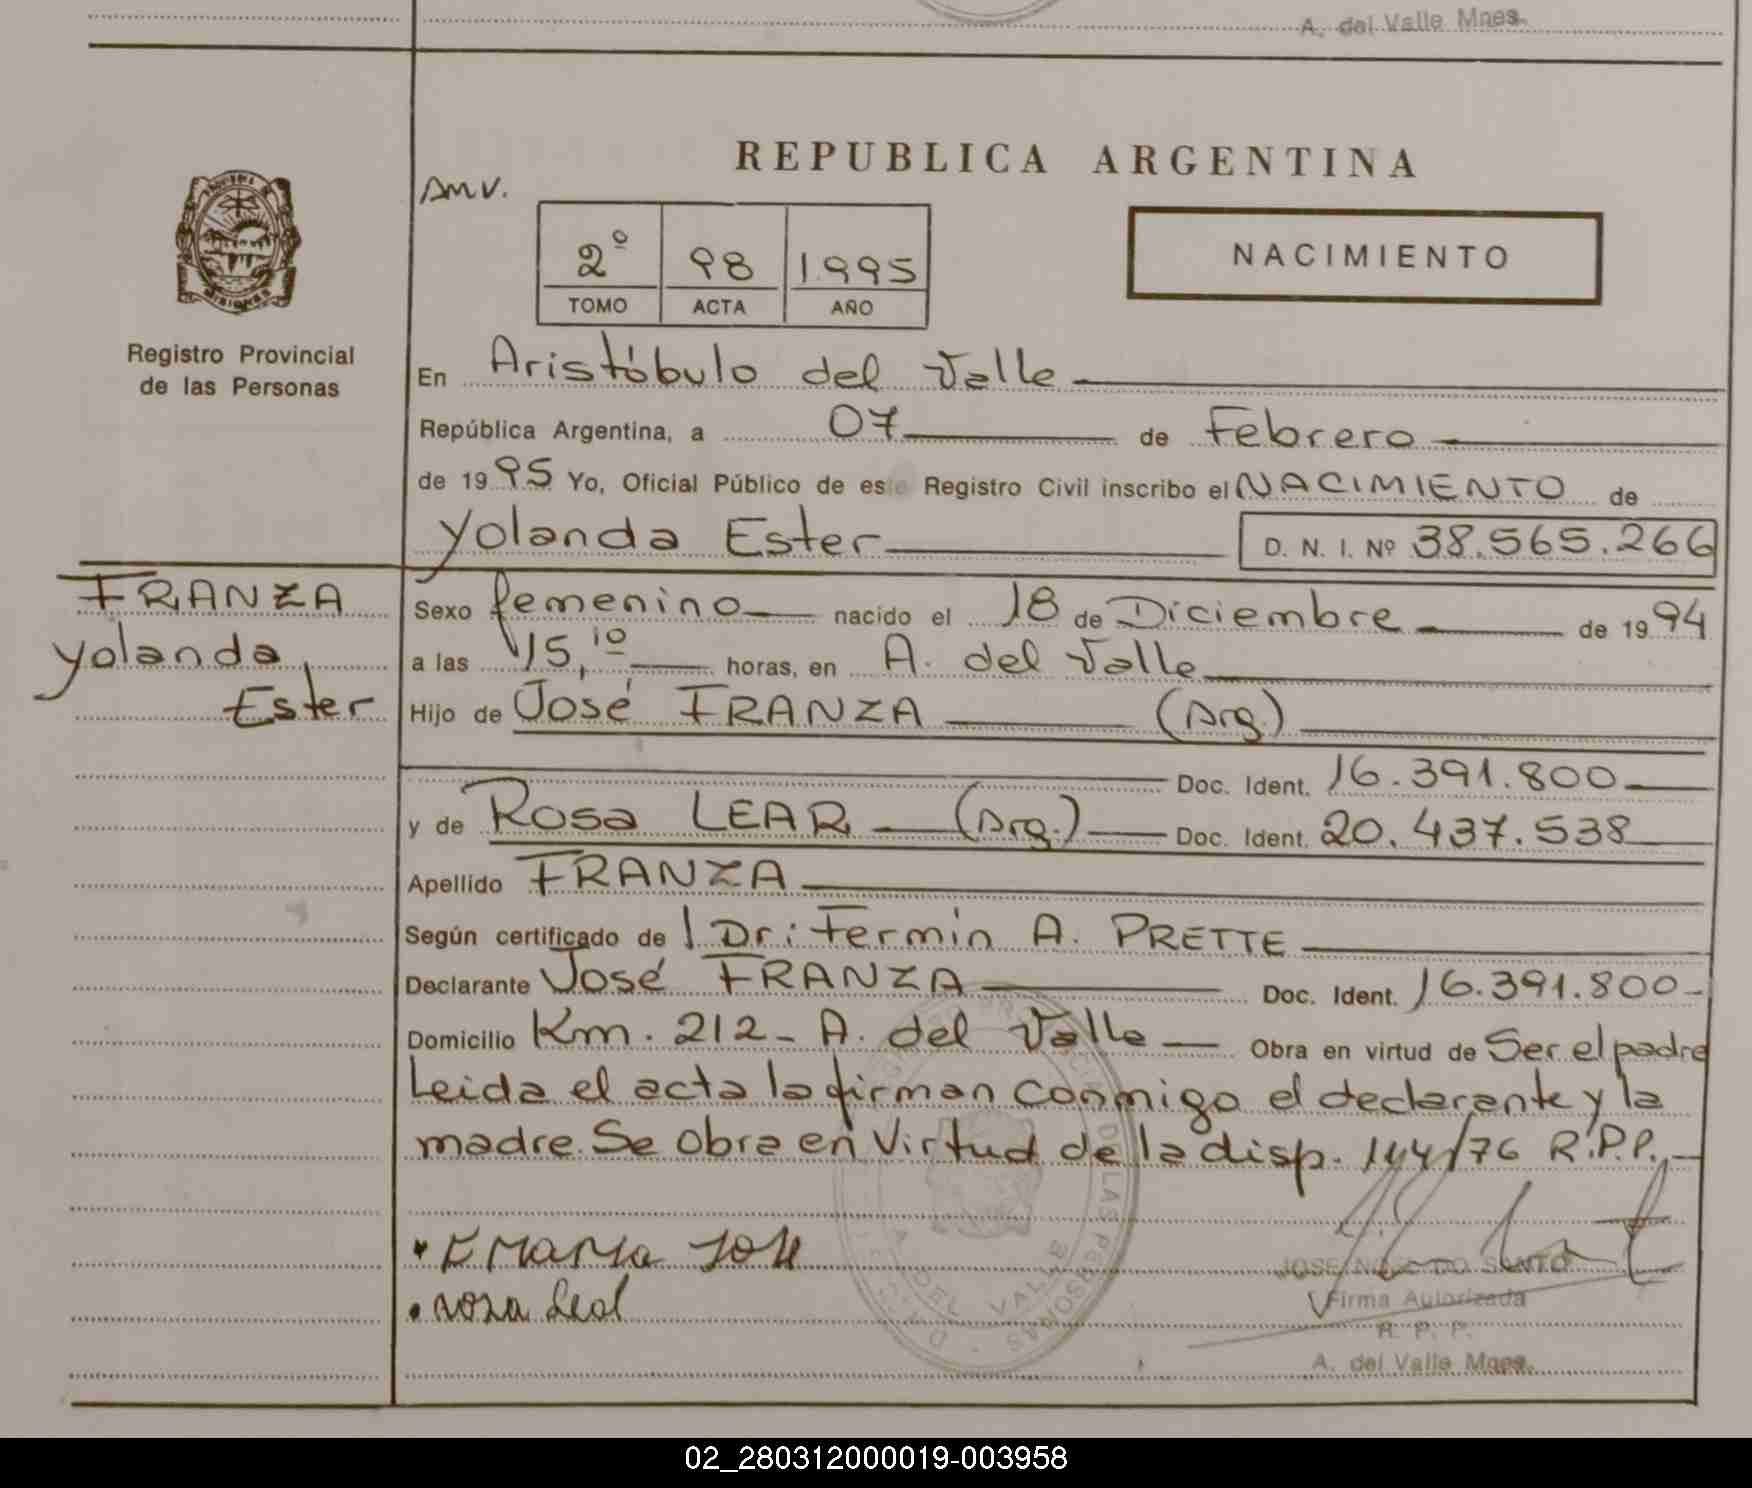 A. del Valle Mnes.
REPUBLICA ARGENTINA
AMV.
2º 98 1.995
TOMO ACTA AÑO
NACIMIENTO
Registro Provincial
de las Personas
En Aristóbulo del Valle
República Argentina, a 07 de Febrero
de 19 95 Yo, Oficial Público de este Registro Civil inscribo el NACIMIENTO de
Yolanda Ester D. N. I. Nº 38.565.266
FRANZA
Yolanda
Ester
Sexo femenino nacido el 18 de Diciembre de 19 94
a las 15,10 horas, en A. del Valle
Hijo de José FRANZA (Arg.)
Doc. Ident. 16.391.800
y de Rosa LEAR (Arg.) Doc. Ident. 20.437.538
Apellido FRANZA
Según certificado de Dr: Fermin A. PRETTE
Declarante José FRANZA Doc. Ident. 16.391.800-
Domicilio Km. 212- A. del Valle Obra en virtud de Ser el padre
Leida el acta la firman conmigo el declarante y la
madre. Se obra en virtud de la disp. 144/76 R.P.P.
Firma Autorizada
R. P. P.
A. del Valle Mnes.
02_280312000019-003958